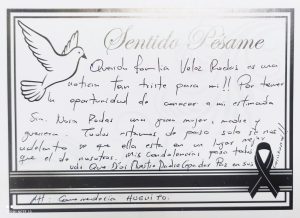 Sentido Pésame
Querida familia Veloz Rodas es una
noticia tan triste para mi!! Por tener
la oportunidad de conocer a mi estimada
Sra. Nora Rodas una gran mujer, madre y
guerrera. Todos estamos de paso solo se nos
adelanto se que ella esta en un lugar mejor
que el de nosotros. Mis condolencias para todos
uds Que Dios Nuestro Padre Celestial Paz en sus
Att: Comendería HUGUITO.